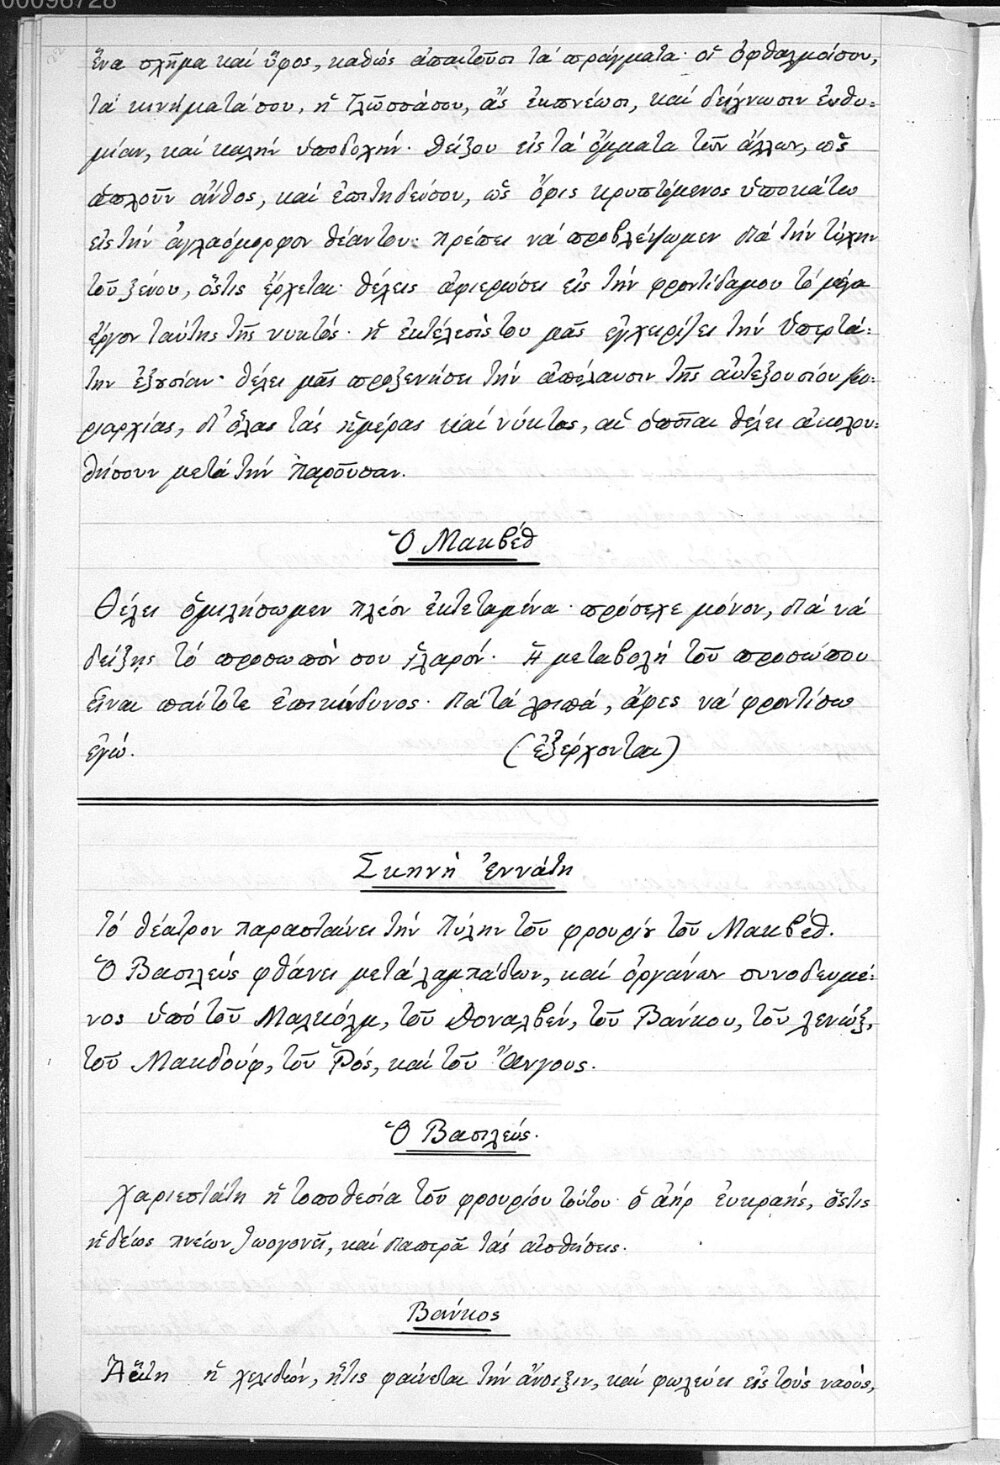 00096728
ἕνα σχῆμα καὶ ὕφος, καθὼς ἀπαιτοῦσι τὰ πράγματα· οἱ ὀφθαλμοίσου,
τὰ κινήματάσου, ἡ γλῶσσάσου, ἂς ἐκπνέωσι, καὶ δείχνωσιν ἐνθυ-
μίαν, καὶ καλὴν ὑποδοχήν· δείξου εἰς τὰ ὄμματα τῶν ἄλλων, ὡς
ἁπλοῦν ἄνθος, καὶ ἐπιτηδεύσου, ὡς ὄφις κρυπτόμενος ὑποκάτω
εἰς τὴν ἀγλαόμορφον θέαντου· πρέπει νὰ προβλέψωμεν διὰ τὴν τύχην
τοῦ ξένου, ὅστις ἔρχεται· θέλεις ἀφιερώσει εἰς τὴν φροντίδαμου τὸ μέγα
ἔργον ταύτης τῆς νυκτός· ἡ ἐκτέλεσίς του μᾶς ἐγχειρίζει τὴν ὑπερτά-
την ἐξουσίαν· θέλει μᾶς προξενήσει τὴν ἀπόλαυσιν τῆς αὐτεξουσίου κυ-
ριαρχίας, δι' ὅλας τὰς ἡμέρας καὶ νύκτας, αἱ ὁποῖαι θέλει ἀκολου-
θήσουν μετὰ τὴν παροῦσαν.
Ὁ Μακβέθ
Θέλει ὁμιλήσωμεν πλέον ἐκτεταμένα· πρόσεχε μόνον, διὰ νὰ
δείξῃς τὸ προσωπόν σου ἱλαρόν· ἡ μεταβολὴ τοῦ προσώπου
εἶναι πάντοτε ἐπικίνδυνος· διὰ τὰ λοιπά, ἄφες νὰ φροντίσω
ἐγώ. (ἐξέρχονται)
Σκηνὴ ἐννάτη
Τὸ θέατρον παρασταίνει τὴν πύλην τοῦ φρουρίου τοῦ Μακβέθ.
Ὁ Βασιλεὺς φθάνει μετὰ λαμπάδων, καὶ ὀργάνων συνοδευμέ-
νος ὑπὸ τοῦ Μαλκόλμ, τοῦ Δοναλβέν, τοῦ Βάνκου, τοῦ Λενώξ,
τοῦ Μακδούφ, τοῦ Ῥός, καὶ τοῦ Ἄνγους.
Ὁ Βασιλεύς.
Χαριεστάτη ἡ τοποθεσία τοῦ φρουρίου τούτου· ὁ ἀὴρ εὐκραής, ὅστις
ἡδέως πνέων ζωογονεῖ, καὶ διαπερᾷ τὰς αἰσθήσεις.
Βάνκος
Αὕτη ἡ χελιδών, ἥτις φαίνεται τὴν ἄνοιξιν, καὶ φωλεύει εἰς τοὺς ναούς,